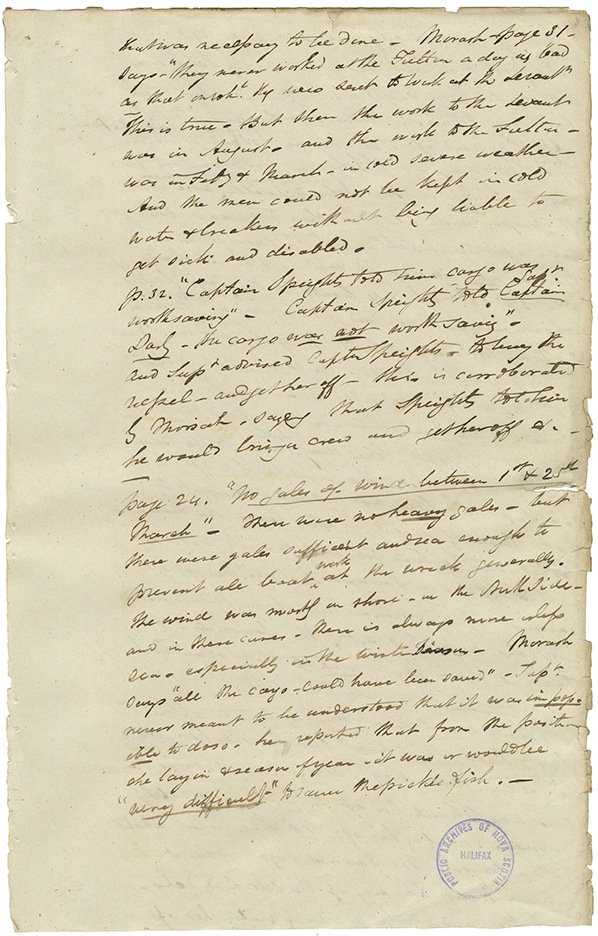 that was necessary to be done — Morash — page 31 —
says — "they never worked at the Fulton a day as bad
as that on wh.^t they were sent to work at the Levant"
This is true — But then the work to the Levant
was in August — and the work to the Fulton —
was in Feby & March — in cold severe weather —
And the men could not be kept in cold
water & breakers without being liable to
get sick and disabled.
p. 32. "Captain Speights told him cargo was
worth saving" — Captain Speights told Capt
Darby — the cargo was not worth saving" —
and Supt advised Captn Speights — to buy the
vessel — and get her off — this is corroborated
by Morash — saying that Speights told him
he would bring a crew and get her off &c. —
page 24. "No gales of wind between 1st & 25th
March" — There were no heavy gales — but
there were gales sufficient and sea enough to
prevent all boat work at the wreck generally.
The wind was mostly on shore — on the South Side —
and in these cases — there is always more
sea — especially in the winter Season — Morash
says "all the cargo could have been saved" — Supt
never meant to be understood that it was impos-
ible to do so — he reported that from the position
she lay in & season of year — it was or would be
"very difficult" to save the pickled fish. —
PUBLIC ARCHIVES OF NOVA SCOTIA
HALIFAX